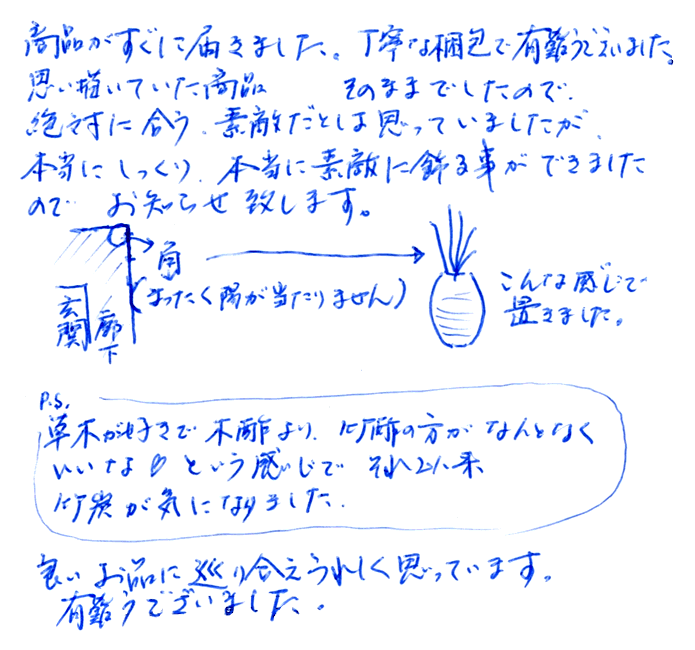 商品がすぐに届きました。丁寧な梱包で有難うございました。
思い描いていた商品 そのままでしたので、
絶対に合う、素敵だとは思っていましたが、
本当にしっくり、本当に素敵に飾る事ができました
ので お知らせ致します。
角
(まったく陽が当たりません)
玄関
廊下
こんな感じで
置きました。
P.S.
草木が好きで木酢より、竹酢の方がなんとなく
いいな♡という感じで それ以来
竹炭が気になりました。
良いお品に巡り合えうれしく思っています。
有難うございました。